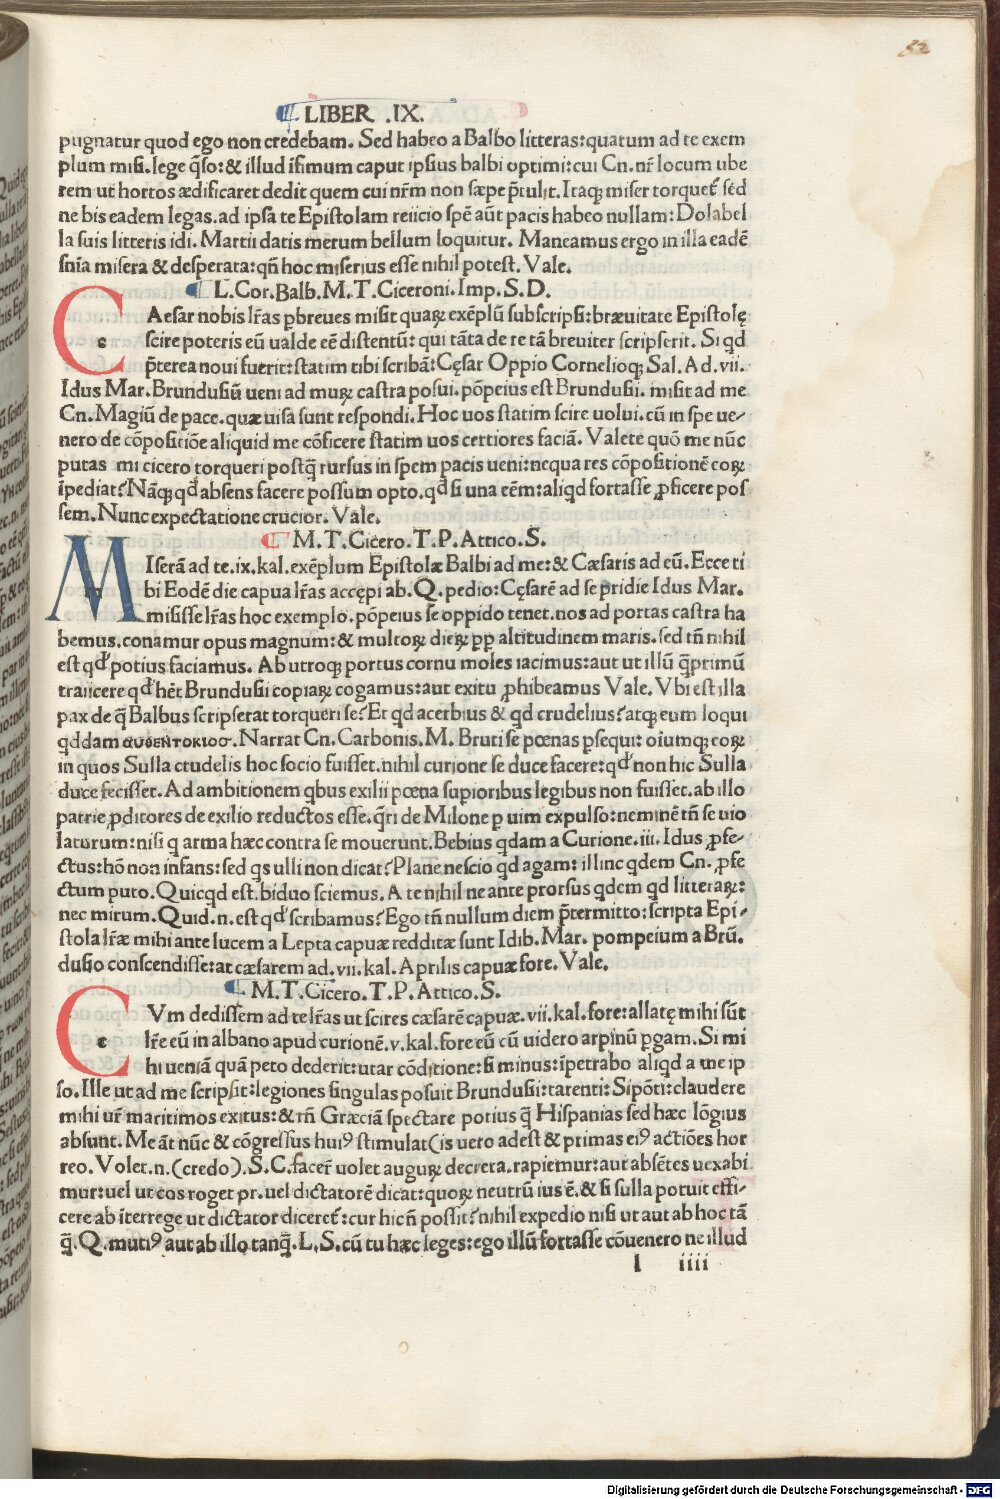 52
LIBER .IX.
pugnatur quod ego non credebam. Sed habeo a Balbo litteras: quatum ad te exem
plum misi. lege q̃so: & illud ĩfimum caput ipsius balbi optimi: cui Cn. nr̃ locum ube
rem ut hortos ædificaret dedit quem cui nr̃m non sæpe p̃tulit. Itaqꝫ miser torquet᷑ sed
ne bis eadem legas. ad ipsa te Epistolam reiicio spẽ aũt pacis habeo nullam: Dolabel
la suis litteris idi. Martii datis merum bellum loquitur. Maneamus ergo in illa eadẽ
sñia misera & desperata: qñ hoc miserius esse nihil potest. Vale.
L. Cor. Balb. M. T. Ciceroni. Imp. S. D.
CAesar nobis lr̃as ꝑbreues misit quaꝝ exẽplũ subscripsi: bræuitate Epistolę
scire poteris eũ ualde eẽ distentũ: qui tãta de re tã breuiter scripserit. Si qd
p̃terea noui fuerit: statim tibi scribã: Cęsar Oppio Cornelioqꝫ Sal. Ad. vii.
Idus Mar. Brundusiũ ueni ad muꝝ castra posui. põpeius est Brundusii. misit ad me
Cn. Magiũ de pace. quæ uisa sunt respondi. Hoc uos statim scire uolui. cũ in spe ue-
nero de cõpositiõe aliquid me cõficere statim uos certiores faciã. Valete quõ me nũc
putas mi cicero torqueri postq̃ rursus in spem pacis ueni: nequa res cõpositionẽ eoꝝ
ĩpediat? Nãqꝫ qđ absens facere possum opto. qđ si una eẽm: aliqd fortasse ꝓficere pos
sem. Nunc expectatione crucior. Vale.
M. T. Cicero. T. P. Attico. S.
MIserã ad te. ix. kal. exẽplum Epistolæ Balbi ad me: & Cæsaris ad eũ. Ecce ti
bi Eodẽ die capua lr̃as accępi ab. Q. pedio: Cęsarẽ ad se pridie Idus Mar.
misisse lr̃as hoc exemplo. põpeius se oppido tenet. nos ad portas castra ha
bemus. conamur opus magnum: & multoꝝ dieꝝ pp̱ altitudinem maris. sed tñ nihil
est qđ potius faciamus. Ab utroqꝫ portus cornu moles iacimus: aut ut illũ q̃primũ
traiicere qđ hẽt Brundusii copiaꝝ cogamus: aut exitu ꝓhibeamus Vale. Vbi est illa
pax de q̃ Balbus scripserat torqueri se? Et qd acerbius & qd crudelius? atqꝫ eum loqui
qddam αυθεντοκιοσ. Narrat Cn. Carbonis. M. Bruti se pœnas ꝑsequi: oiumqꝫ eoꝝ
in quos Sulla crudelis hoc socio fuisset. nihil curione se duce facere: qđ non hic Sulla
duce fecisset. Ad ambitionem qbus exilii pœna suꝑioribus legibus non fuisset. ab illo
patrie ꝓditores de exilio reductos esse. q̃ri de Milone ꝑ uim expulso: neminẽ tñ se uio
laturum: nisi q arma hæc contra se mouerunt. Bebius qdam a Curione. iii. Idus ꝓfe-
ctus: hõ non infans: sed qs ulli non dicat? Plane nescio qd agam: illinc qdem Cn. ꝓfe
ctum puto. Quicqd est. biduo sciemus. A te nihil ne ante prorsus qdem qd litteraꝝ:
nec mirum. Quid. n. est qđ scribamus? Ego tñ nullum diem p̃termitto: scripta Epi-
stola lr̃æ mihi ante lucem a Lepta capuæ redditæ sunt Idib. Mar. pompeium a Brũ.
dusio conscendisse: at cæsarem ad. vii. kal. Aprilis capuæ fore. Vale.
M. T. Cicero. T. P. Attico. S.
CVm dedissem ad te lr̃as ut scires cæsarẽ capuæ. vii. kal. fore: allatę mihi sũt
lr̃e eũ in albano apud curionẽ. v. kal. fore eũ cũ uidero arpinũ ꝑgam. Si mi
hi ueniã quã peto dederit: utar cõditione: si minus: ĩpetrabo aliqd a me ip
so. Ille ut ad me scripsit: legiones singulas posuit Brundusii: tarenti: Sipõti: claudere
mihi ur̃ maritimos exitus: & tñ Græciã spectare potius q̃ Hispanias sed hæc lõgius
absunt. Me ãt nũc & cõgressus huiꝰ stimulat (is uero adest & primas eiꝰ actiões hor
reo. Volet. n. (credo). S. C. facer᷑ uolet auguꝝ decreta. rapiemur: aut absẽtes uexabi
mur: uel ut eos roget pr. uel dictatorẽ dicat: quoꝝ neutrũ ius ẽ. & si sulla potuit effi-
cere ab ĩterrege ut dictator diceret᷑: cur hic ñ possit? nihil expedio nisi ut aut ab hoc tã
q̃. Q. mutiꝰ aut ab illo tanq̃. L. S. cũ tu hæc leges: ego illũ fortasse cõuenero ne illud
l iiii
Digitalisierung gefördert durch die Deutsche Forschungsgemeinschaft - DFG